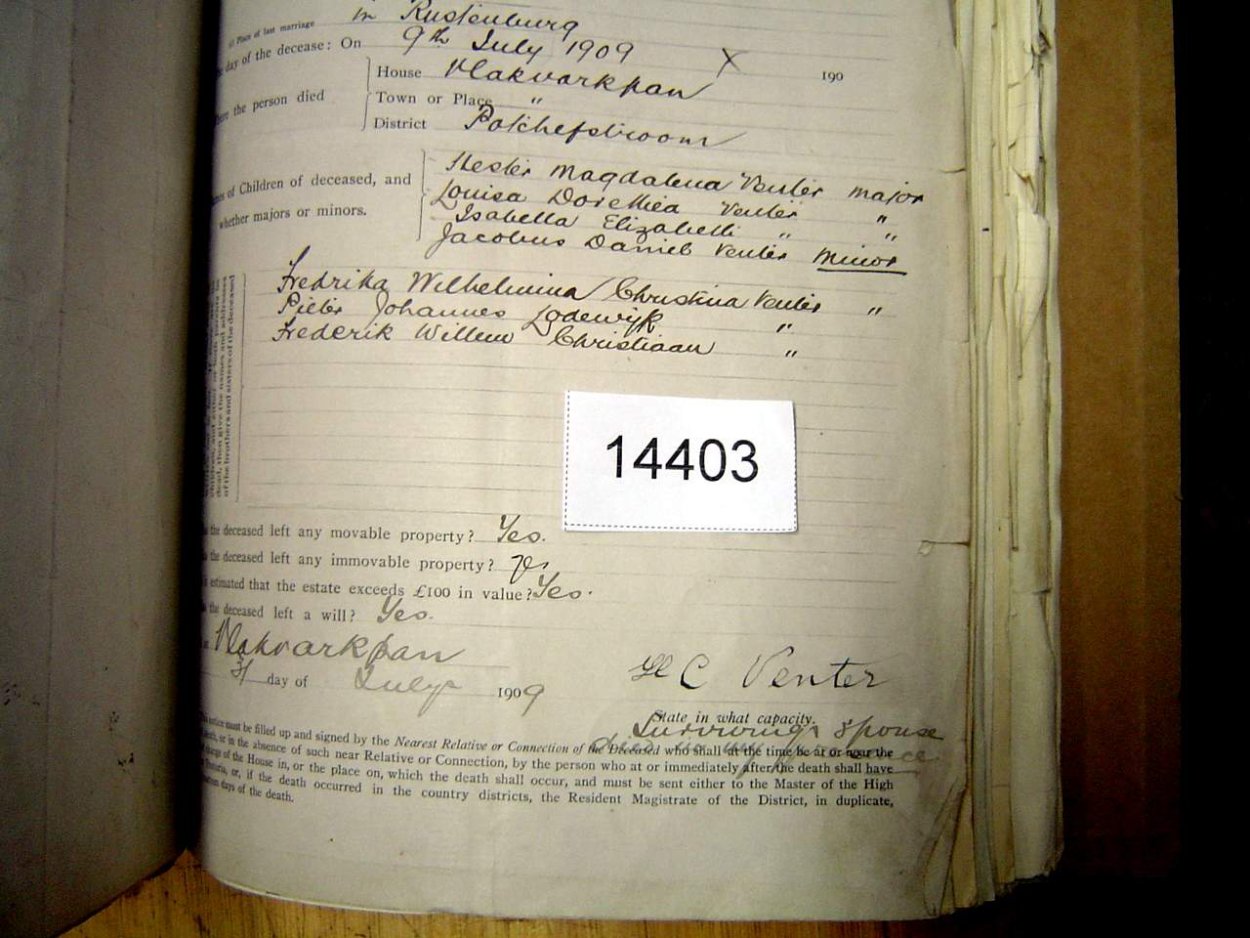 (c) Place of last marriage in Rustenburg
day of the decease: On 9th July 1909 X 190
House Vlakvarkpan
the person died Town or Place "
District Potchefstroom
Hester Magdalena Venter major
of Children of deceased, and Louisa Dorethea Venter "
whether majors or minors. Isabella Elizabeth " "
Jacobus Daniel Venter minor
Fredrika Wilhelmina Christina Venter "
Pieter Johannes Lodewyk "
Frederik Willem Christiaan "
dead, then give the names and addresses
of the brothers and sisters of the deceased
14403
the deceased left any movable property? Yes.
the deceased left any immovable property? yes
estimated that the estate exceeds £100 in value? Yes.
the deceased left a will? Yes.
Vlakvarkpan
31 day of July 1909
C Venter
State in what capacity.
Surviving spouse
notice must be filled up and signed by the Nearest Relative or Connection of the Deceased who shall at the time be at or near the
death, or in the absence of such near Relative or Connection, by the person who at or immediately after the death shall have
charge of the House in, or the place on, which the death shall occur, and must be sent either to the Master of the High
Pretoria, or, if the death occurred in the country districts, the Resident Magistrate of the District, in duplicate,
days of the death.